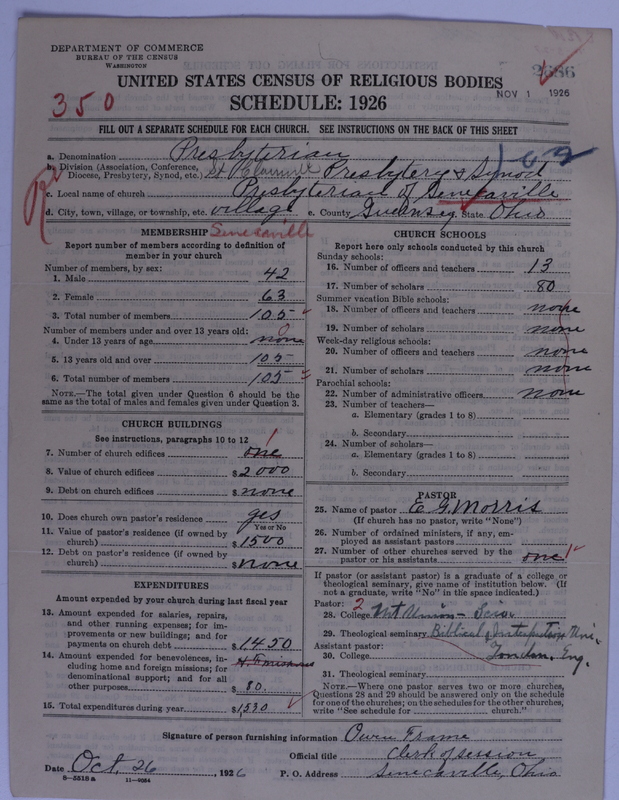 DEPARTMENT OF COMMERCE
BUREAU OF THE CENSUS
WASHINGTON
2686
NOV 1 1926
UNITED STATES CENSUS OF RELIGIOUS BODIES
350
SCHEDULE: 1926
FILL OUT A SEPARATE SCHEDULE FOR EACH CHURCH. SEE INSTRUCTIONS ON THE BACK OF THIS SHEET
a. Denomination Presbyterian
b. Division (Association, Conference, Diocese, Presbytery, Synod, etc.) St Clairsville Presbytery & Synod
c. Local name of church Presbyterian of Senecaville
d. City, town, village, or township, etc. village e. County Guernsey State Ohio
Senecaville
MEMBERSHIP
Report number of members according to definition of
member in your church
Number of members, by sex:
1. Male 42
2. Female 63
3. Total number of members 105
Number of members under and over 13 years old:
4. Under 13 years of age none 0
5. 13 years old and over 105
6. Total number of members 105
NOTE.—The total given under Question 6 should be
same as the total of males and females given under Question 3.
CHURCH BUILDINGS
See instructions, paragraphs 10 to 12
7. Number of church edifices one 1
8. Value of church edifices $ 2000
9. Debt on church edifices $ none
10. Does church own pastor's residence yes
Yes or No
11. Value of pastor's residence (if owned by
church) $ 1500
12. Debt on pastor's residence (if owned by
church) $ none
EXPENDITURES
Amount expended by your church during last fiscal year
13. Amount expended for salaries, repairs,
and other running expenses; for im-
provements or new buildings; and for
payments on church debt $ 1450
14. Amount expended for benevolences, in-
cluding home and foreign missions; for
denominational support; and for all
other purposes $ 80.
15. Total expenditures during year $ 1530
CHURCH SCHOOLS
Report here only schools conducted by this church
Sunday schools:
16. Number of officers and teachers 13
17. Number of scholars 80
Summer vacation Bible schools:
18. Number of officers and teachers none
19. Number of scholars none
Week-day religious schools:
20. Number of officers and teachers none
21. Number of scholars none
Parochial schools:
22. Number of administrative officers none
23. Number of teachers—
a. Elementary (grades 1 to 8)
b. Secondary
24. Number of scholars—
a. Elementary (grades 1 to 8)
b. Secondary
PASTOR
25. Name of pastor E G Morris
(If church has no pastor, write "None")
26. Number of ordained ministers, if any, em-
ployed as assistant pastors
27. Number of other churches served by the
pastor or his assistants one 1
If pastor (or assistant pastor) is a graduate of a college or
theological seminary, give name of institution below. (If
not a graduate, write "No" in the space indicated.)
Pastor: 2
28. College Mt Union - Scio
29. Theological seminary Biblical
Assistant pastor:
30. College London, Eng.
31. Theological seminary
NOTE.—Where one pastor serves two or more churches,
Questions 28 and 29 should be answered only on the schedule
for one of the churches; on the schedules for the other churches,
write "See schedule for church."
Signature of person furnishing information Owen Frame
Official title Clerk of session
Date Oct. 26, 1926 P. O. Address Senecaville, Ohio
8—5518 a 11—9064